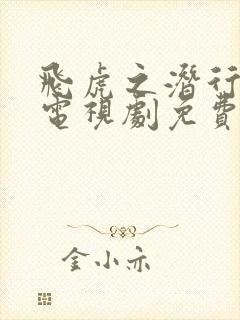 飛虎之潛行
電視劇免費
金小亦